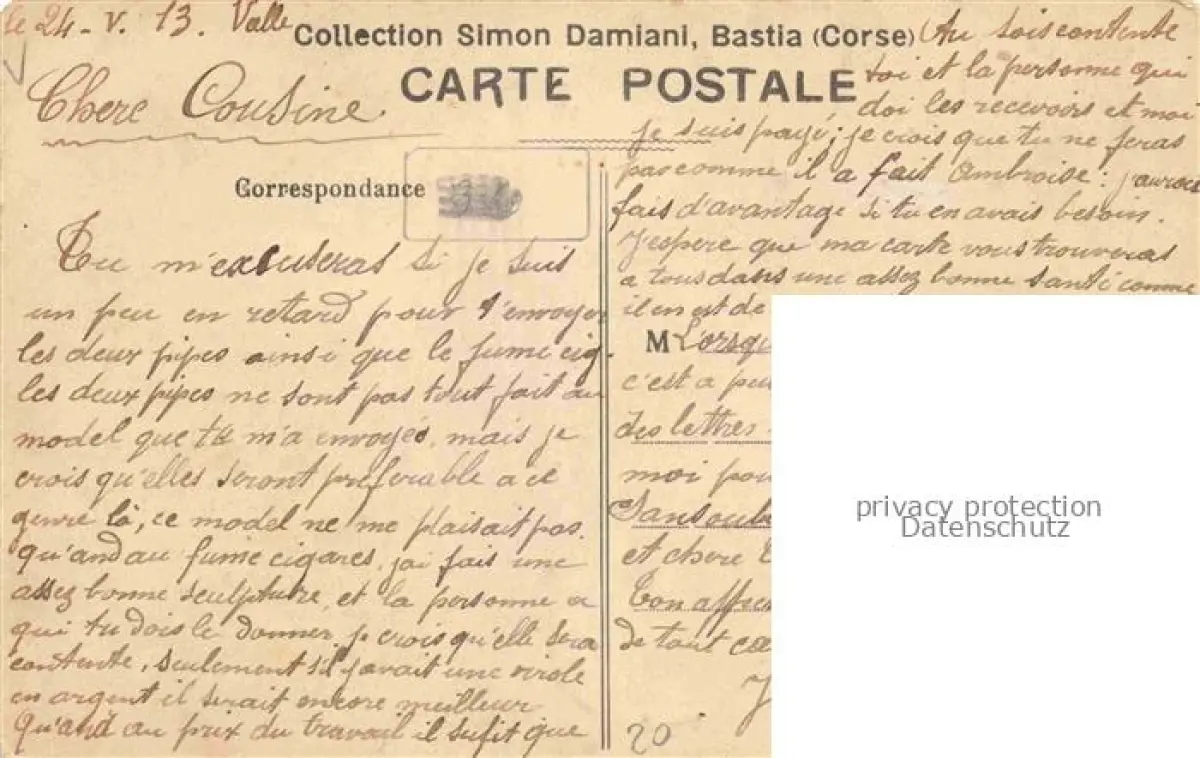 le 24 - V. 13. Valle
Collection Simon Damiani, Bastia (Corse)
CARTE POSTALE
Chere Cousine
Correspondance
Tu m'excuseras si je suis
un peu en retard pour t'envoyer
les deux pipes ainsi que le fume cig.
les deux pipes ne sont pas tout fait au
model que tu m'a envoyés, mais je
crois qu'elles seront preferable a ce
genre là, ce model ne me plaisait pas.
qu'and au fume cigares, jai fais une
assez bonne sculpture, et la personne a
qui tu dois le donner, je crois qu'elle sera
contente, seulement s'il javait une virole
en argent il serait encore meilleur
Qu'and au prix du travail il sufit que
tu sois contente
toi et la personne qui
doi les recevoirs et moi
je suis payé; je crois que tu ne feras
pas comme il a fait Ambroise: j'aurais
fais d'avantage si tu en avais besoin.
J'espere que ma carte vous trouveras
a tous dans une assez bonne santé comme
il en est de
M L'orsqu
c'est a peu
des lettres
moi pou
Sansoub
et chere
Ton affec
de tout coe
J
20
privacy protection
Datenschutz